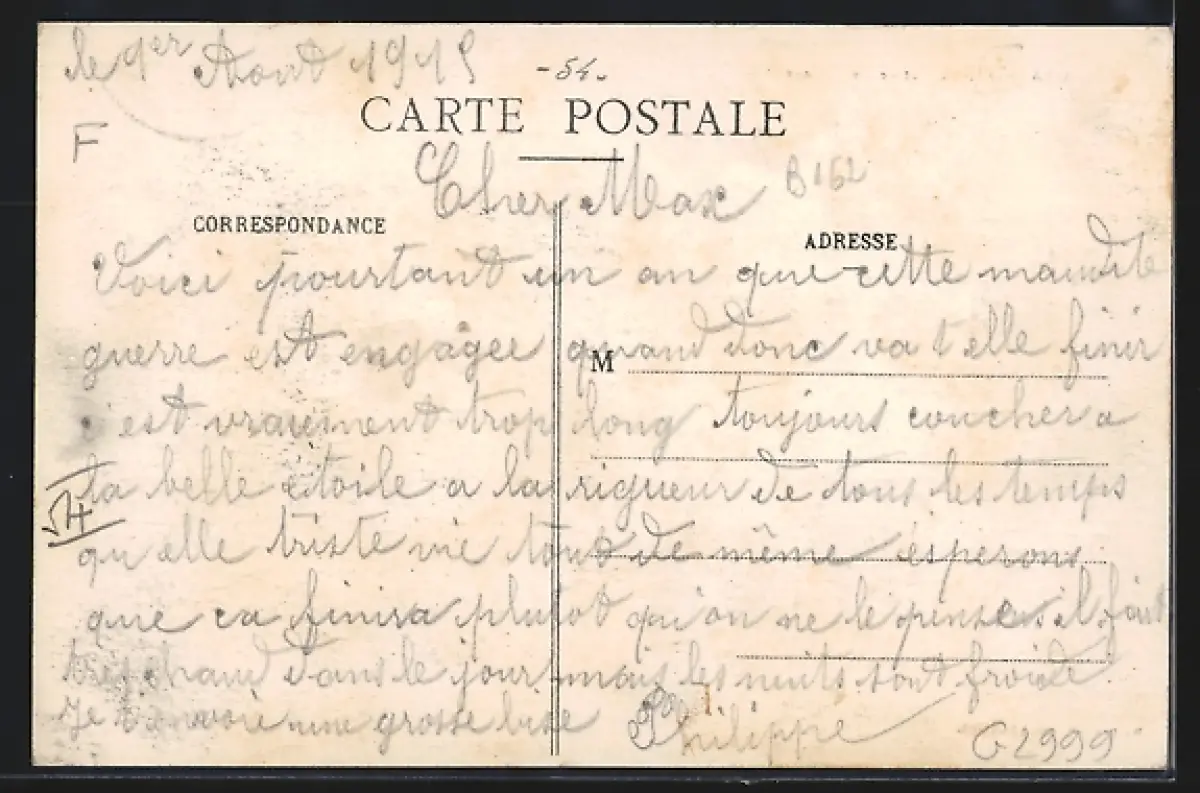 le 1er Aout 1915
-54.
F
CARTE POSTALE
Cher Max
B162
CORRESPONDANCE
ADRESSE
Voici pourtant un an que cette maudite
guerre est engagée quand donc va t elle finir
M
c'est vraiement trop long toujours coucher a
la belle etoile a la rigueur de tous les temps
qu elle triste vie tout de même esperons
que ca finira plutot qu'on ne le pense il fait
tres chaud dans le jour mais les nuits sont froide.
Je t envoie une grosse bise Philippe
G2999